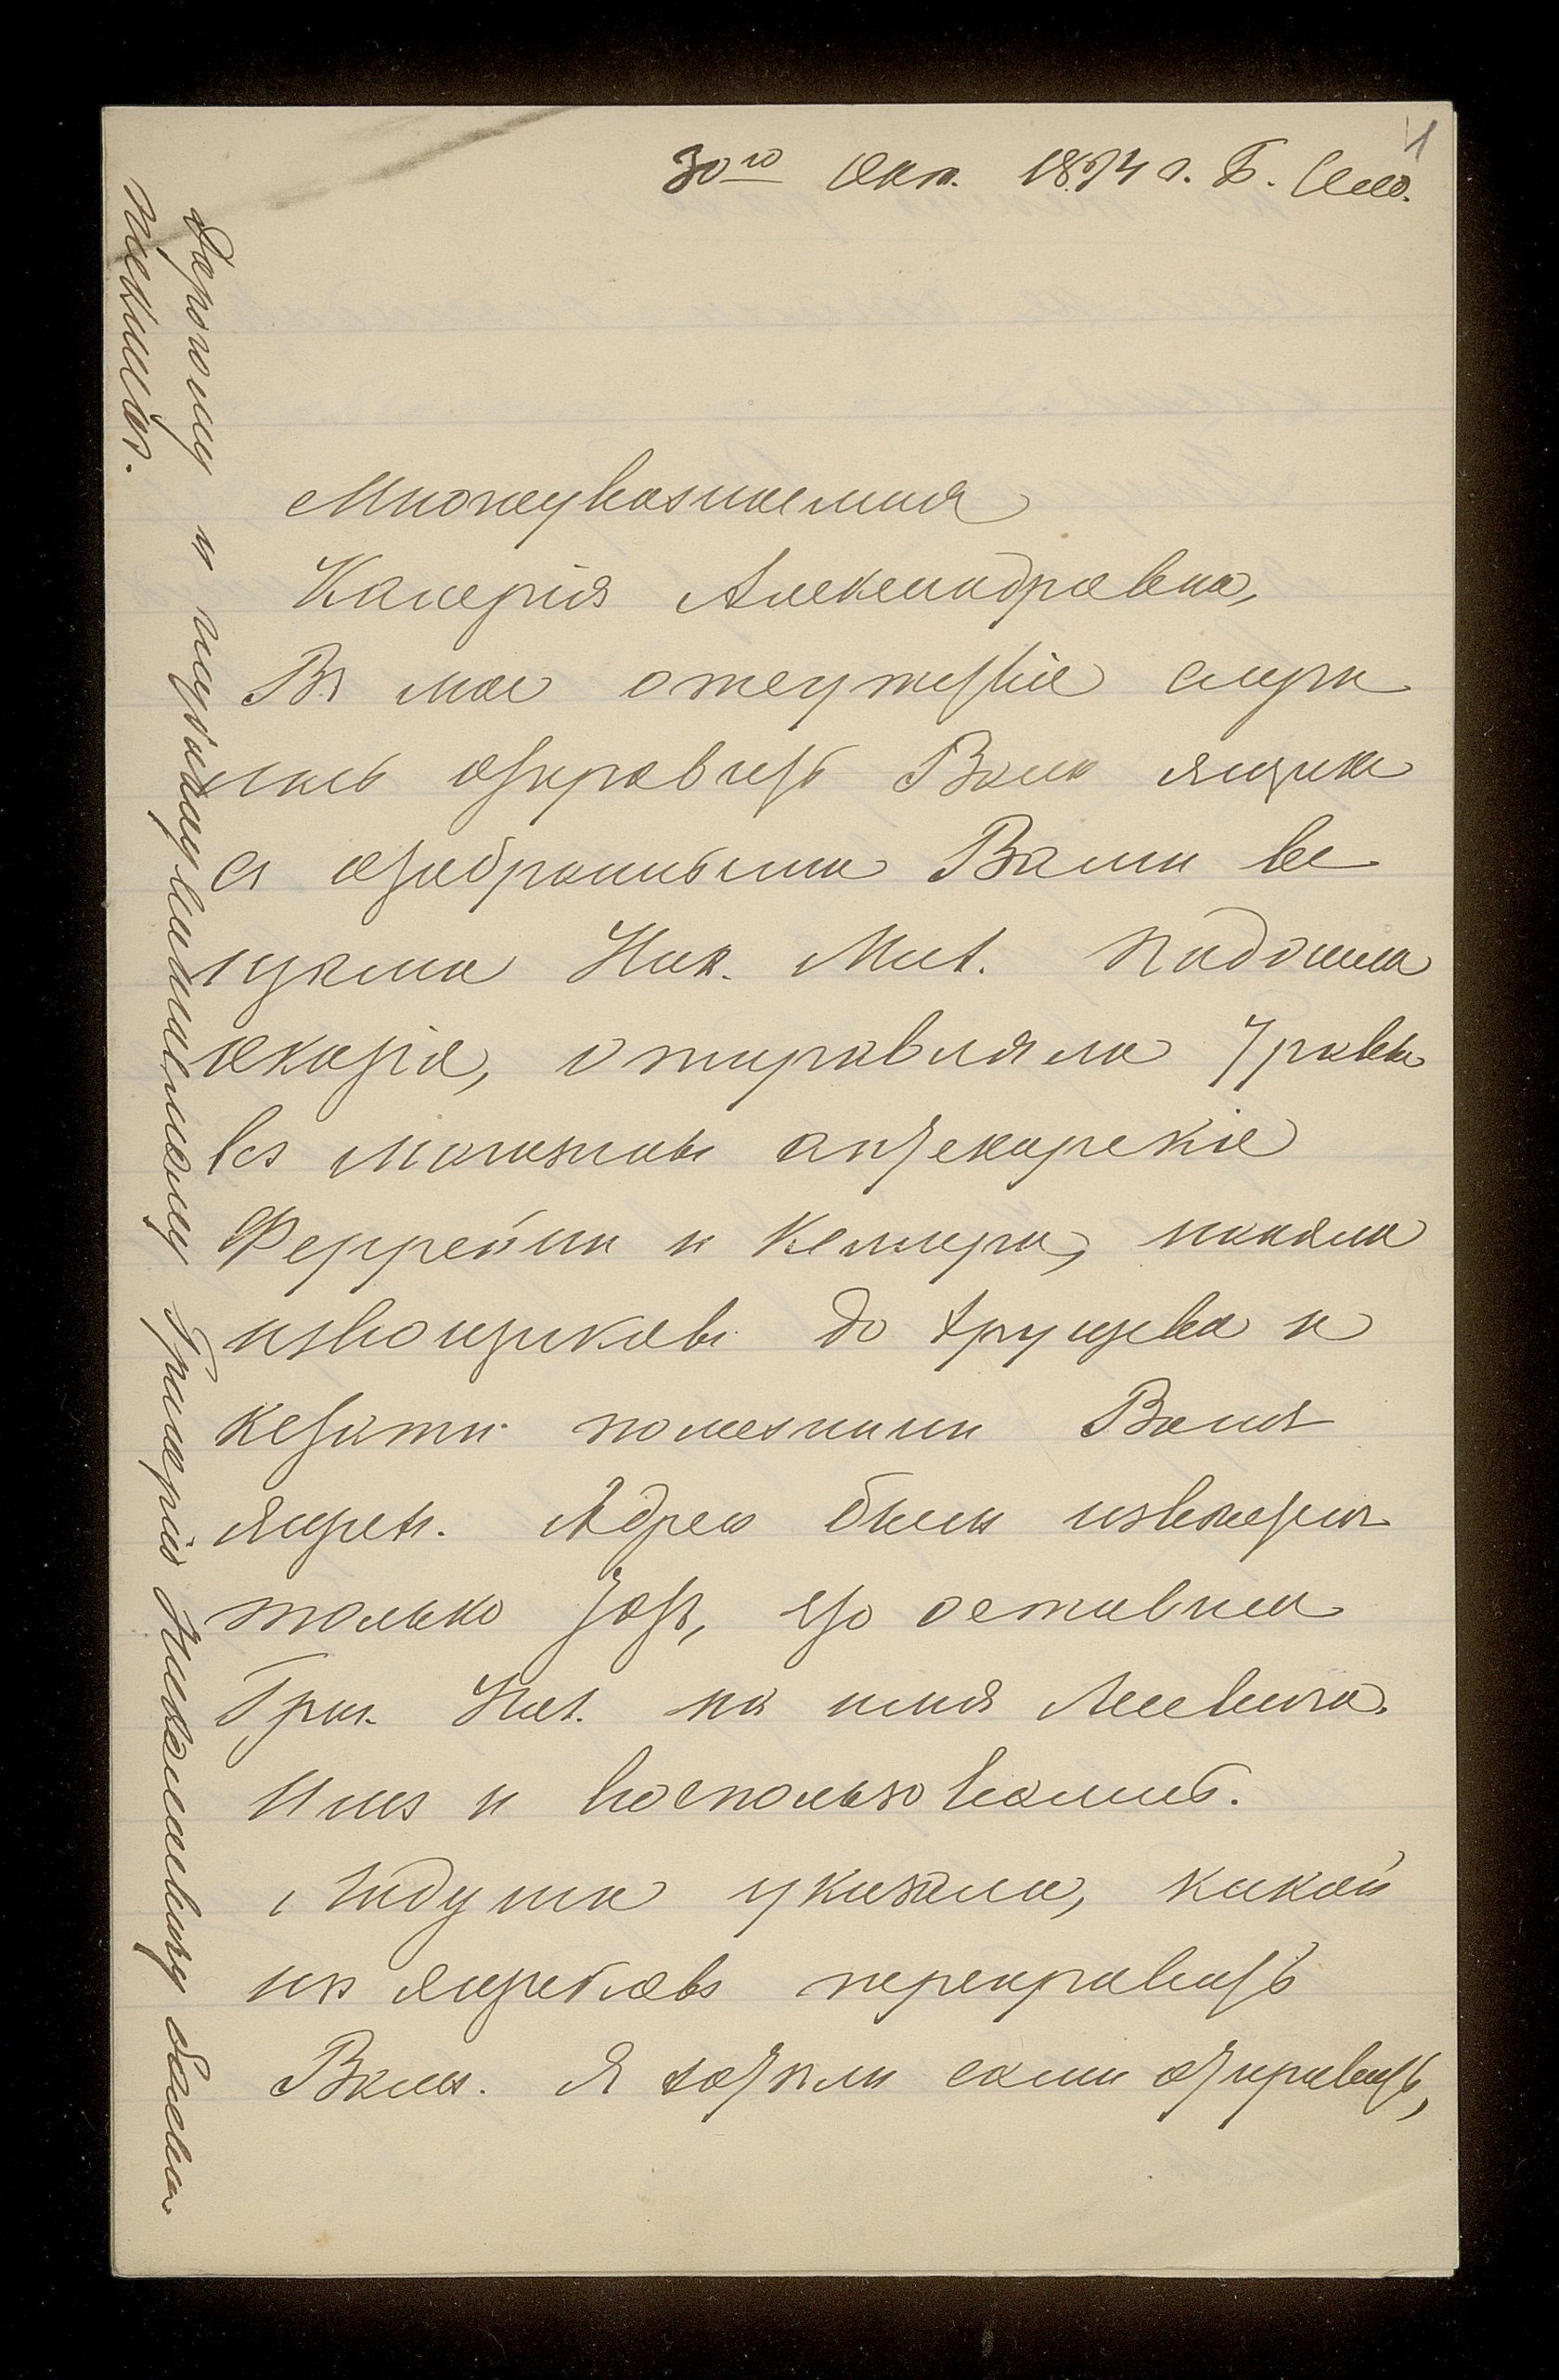 1
30го Окт. 1894 г. Б. Село.
Многоуважаемая
Калерія Александровна,
Въ мое отсутствіе случи
лось отправить Вамъ ящикъ
съ отобранными Вами ве
щами. Ник. Мих. подошла
оказія, отправляла травы
въ магазины аптекарскіе
Феррейнъ и Келлера, наняла
извощиковъ до Хрущева и
кстати послали Вашъ
ящикъ. Адресъ былъ извѣстенъ
только тотъ, что оставила
Григ. Ник. на имя
Имъ и воспользовались.
Лидуша указала, какой
изъ ящиковъ переправить
Вамъ. Я хотѣлъ самъ отправить,
Дорогому и глубокоуважаемому Григорію Николаевичу
поклонъ.